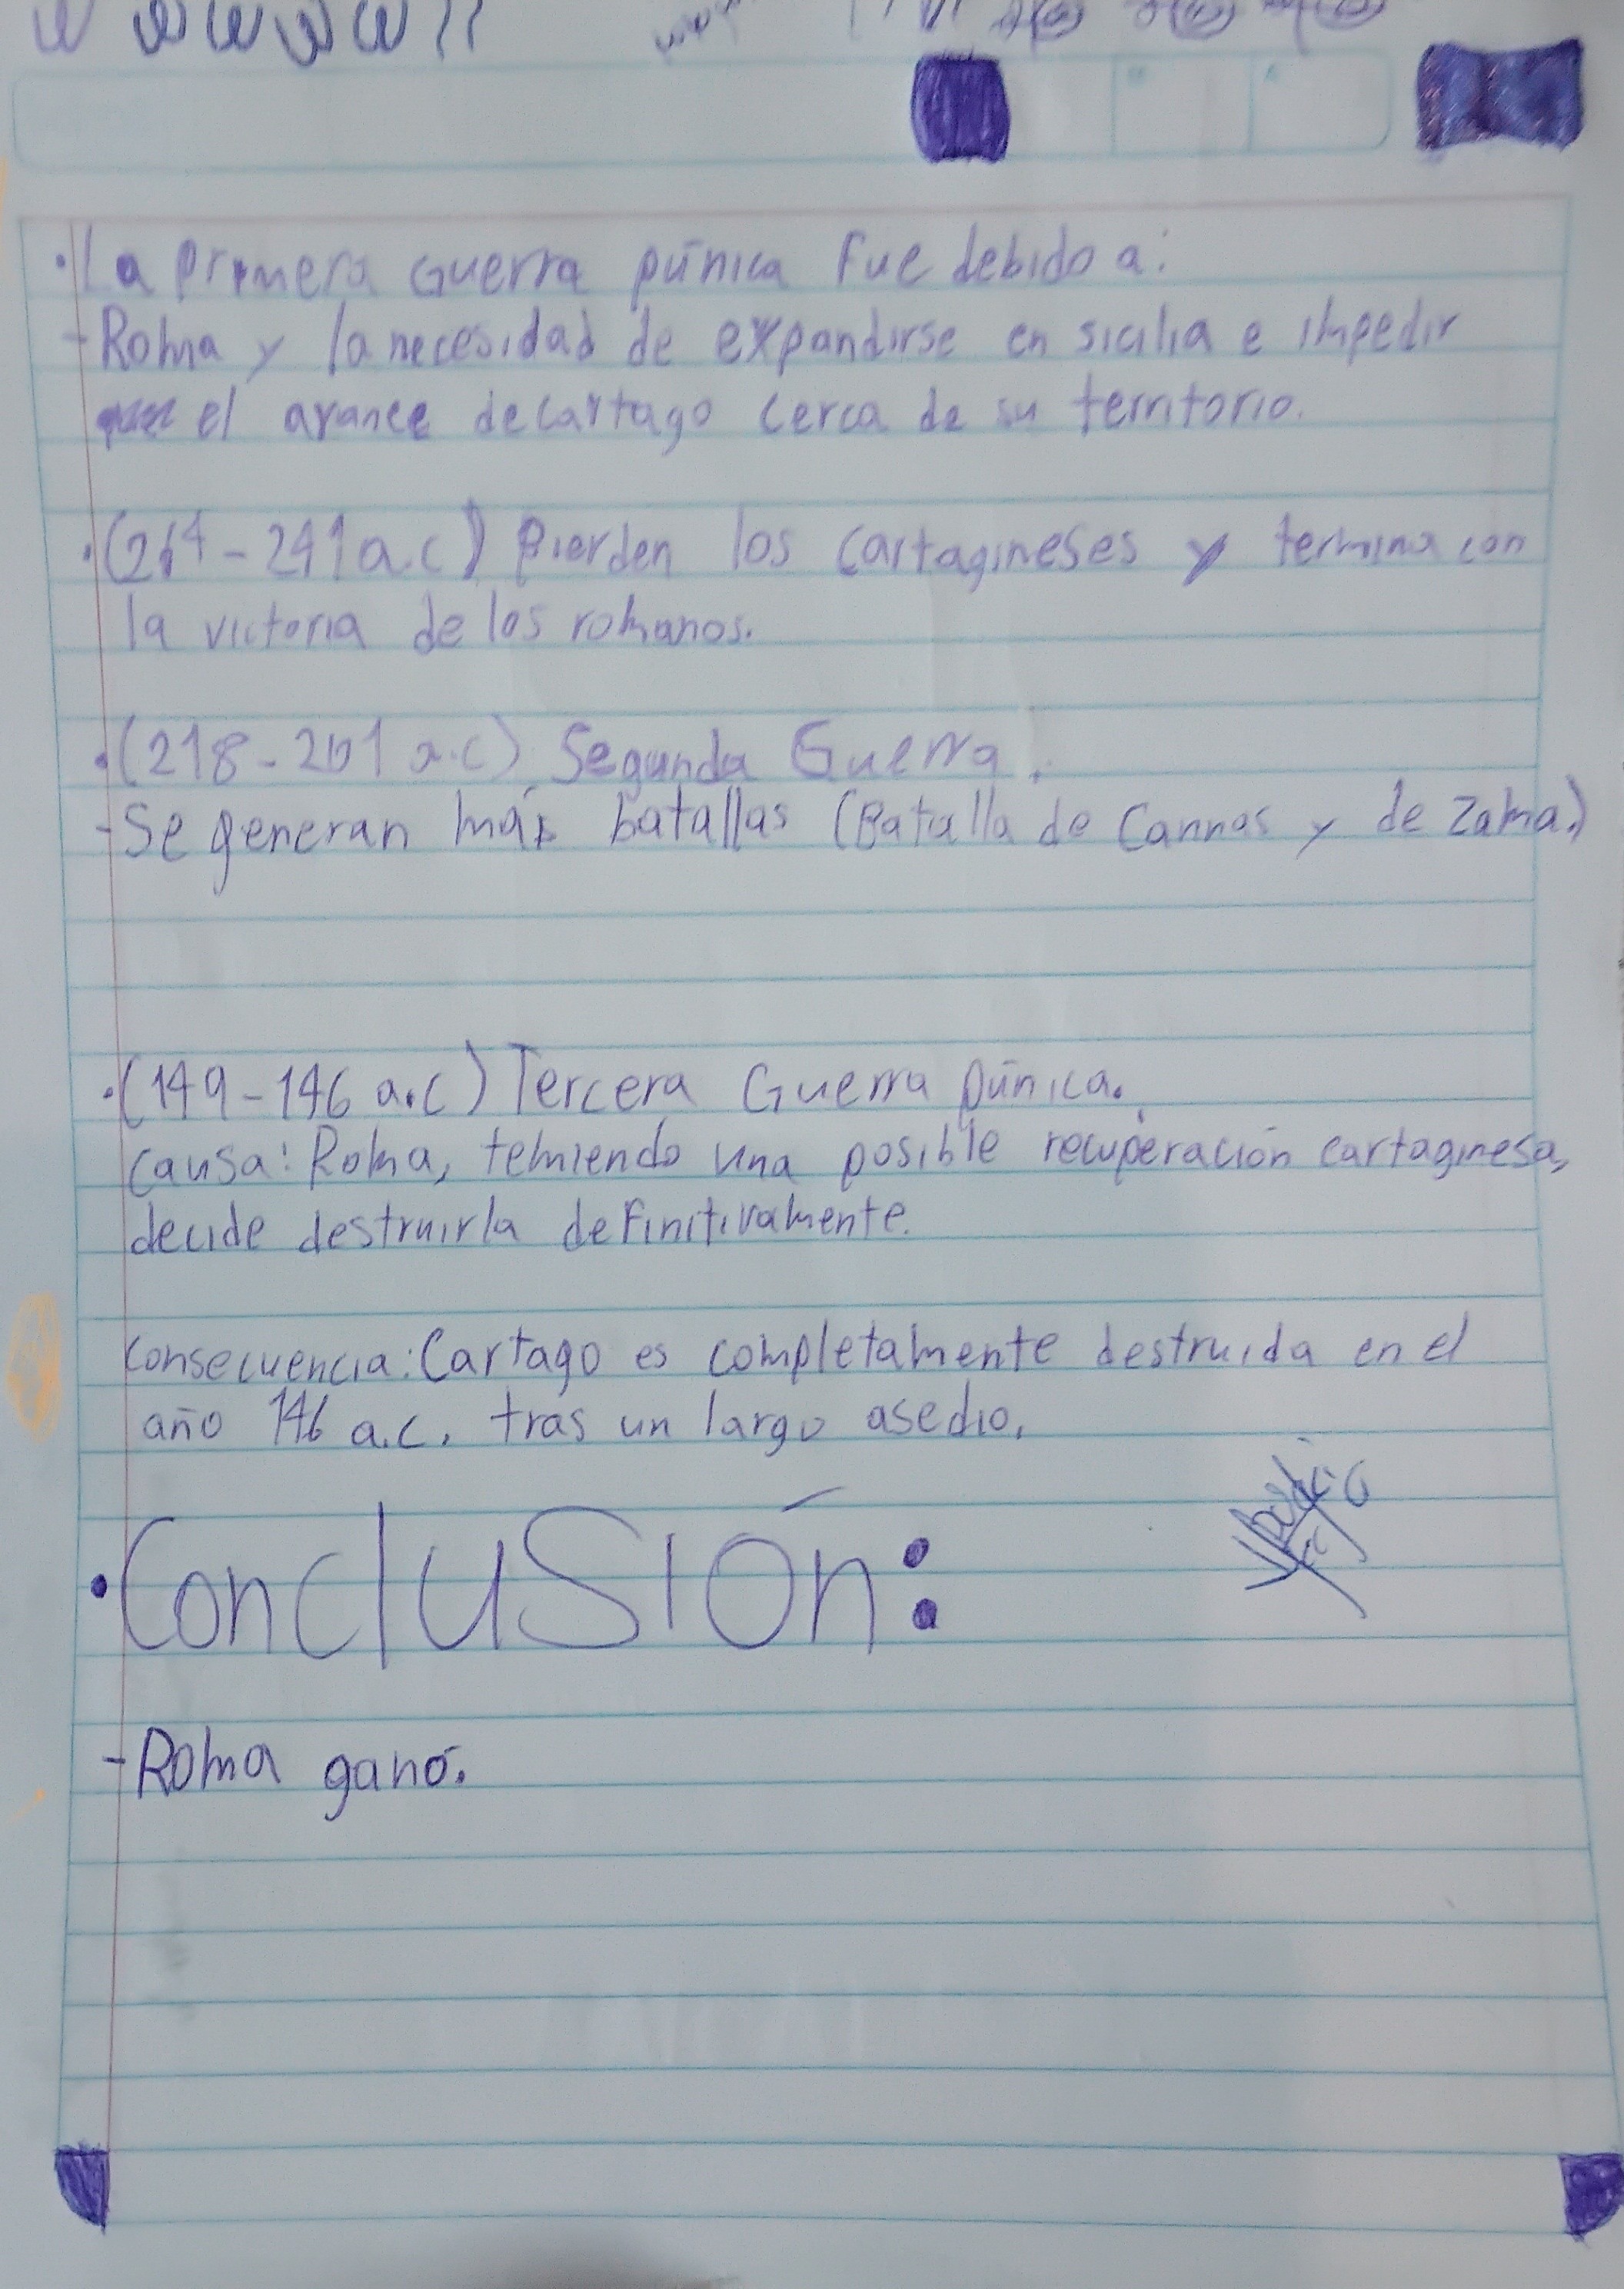 • La primera Guerra púnica fue debido a:
- Roma y la necesidad de expandirse en sicilia e impedir
el avance de cartago cerca de su territorio.
• (264 - 241 a.c) Pierden los cartagineses y termina con
la victoria de los romanos.
• (218 - 201 a.c) Segunda Guerra.
- Se generan más batallas (Batalla de Cannas y de Zama.)
• (149 - 146 a.c) Tercera Guerra púnica.
causa: Roma, temiendo una posible recuperación cartaginesa,
decide destruirla definitivamente.
consecuencia: Cartago es completamente destruida en el
año 146 a.c. tras un largo asedio.
• Conclusión:
- Roma ganó.